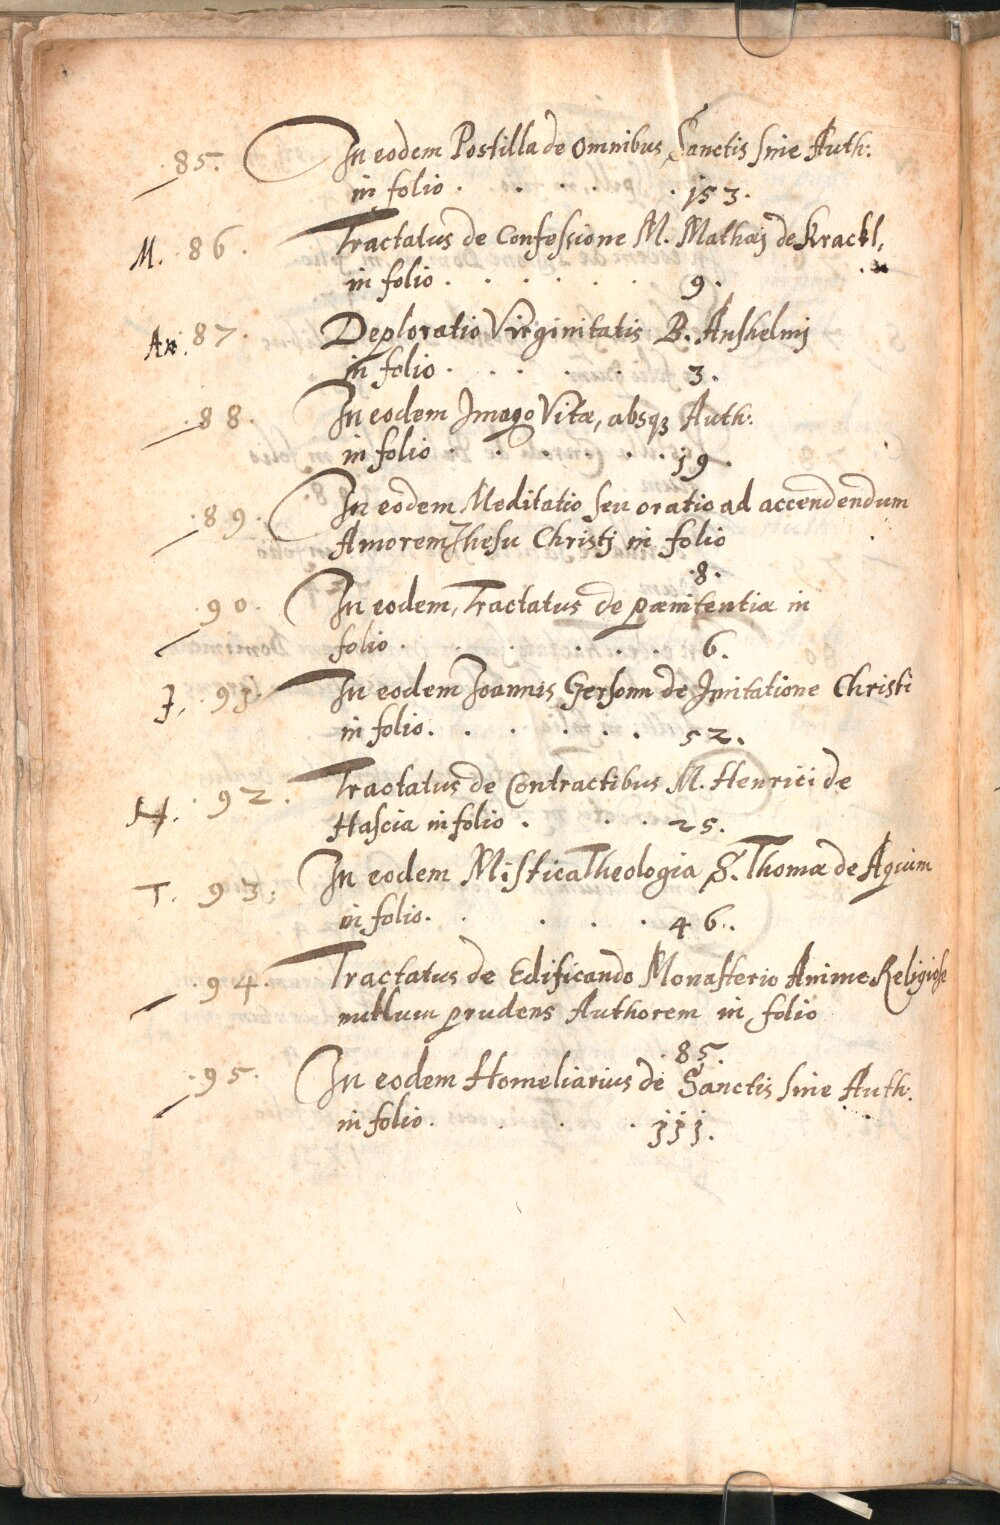 .85. In eodem Postilla de omnibus Sanctis sine Auth:
in folio . . . . . 153.
M. .86. Tractatus de Confessione M. Mathæj de Krackl,
in folio . . . . . . 9.
An. .87. Deploratio Virginitatis B. Anshelmj
in folio . . . . . 3.
.88. In eodem Imago Vitæ, absqꝫ Auth:
in folio . . . . . 19.
.89. In eodem Meditatio seu oratio ad accendendum
Amorem Jhesu Christj in folio
.8.
.90. In eodem, Tractatus de pænitentia in
folio . . . . . . 6.
J. .91. In eodem Joannis Gersonn de Imitatione Christi
in folio . . . . . . 52.
H. .92. Tractatus de Contractibus M. Henrici de
Hascia in folio . . . 25.
T. 93. In eodem Mistica Theologia S. Thomæ de Aquim
in folio . . . . . 46.
.94. Tractatus de Edificando Monasterio Anime Religiose
nullum prudens Authorem in folio
.85.
.95. In eodem Homeliarius de Sanctis sine Auth.
in folio . . . . jjj.